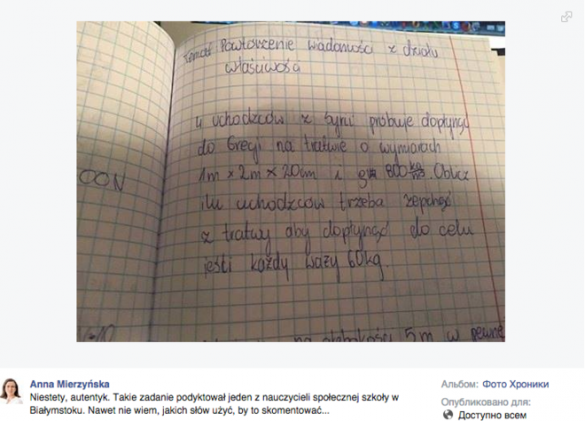 Temat: Powtórzenie wiadomości z działu
właściwości
4 uchodźców z Syrii próbuje dopłynąć
do Grecji na tratwie o wymiarach
1m × 2m × 20cm i 800. Oblicz
ilu uchodźców trzeba zepchnąć
z tratwy aby dopłynąć do celu
jeśli każdy waży 60kg
głębokości 5m w
Anna Mierzyńska
Niestety, autentyk. Takie zadanie podyktował jeden z nauczycieli społecznej szkoły w
Białymstoku. Nawet nie wiem, jakich słów użyć, by to skomentować...
Альбом: Фото Хроники
Опубликовано для:
Доступно всем